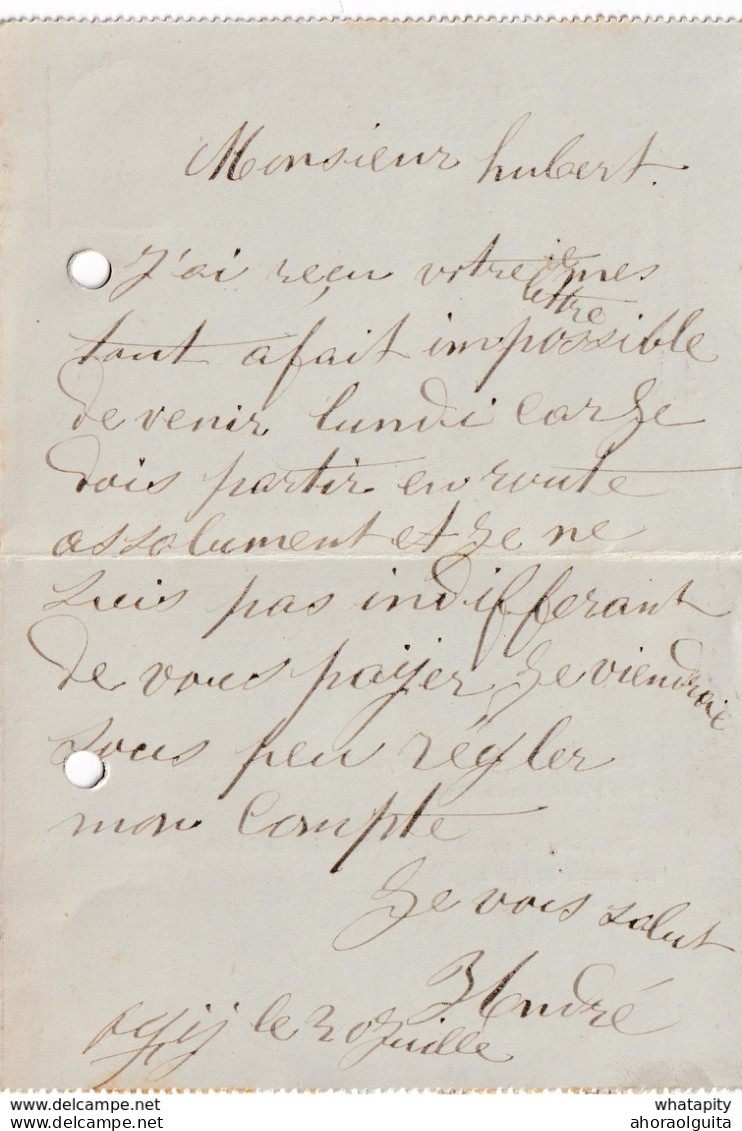 Monsieur hubert.
J'ai reçu votre lettre mes
tout afait impossible
de venir lundi car Je
dois partir en route
assolument et Je ne
suis pas indifferant
de vous payer Je viendrai
sous peu régler
mon Compte
Je vous salut
André
le 20 Juille
whatapity
ahoraolguita
delcampe.net